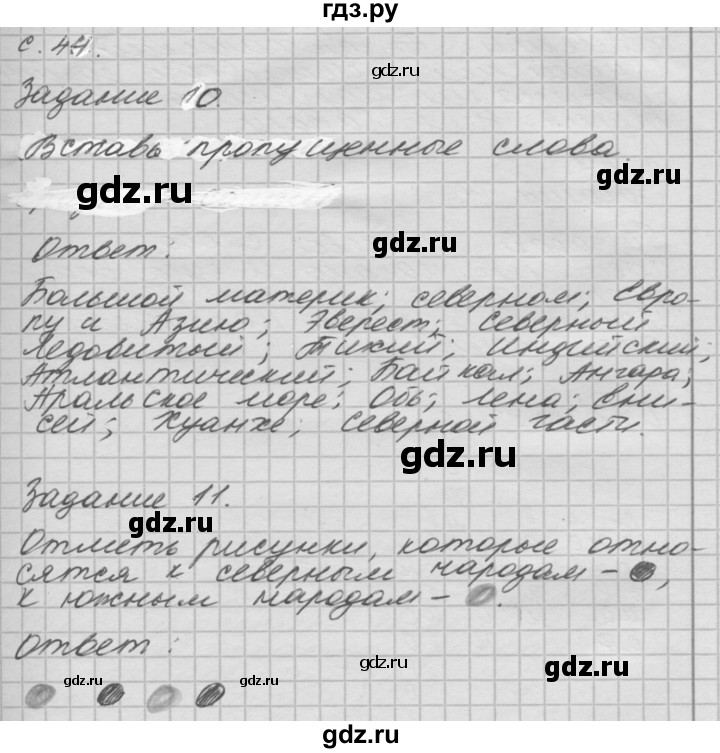 гдз.ру
с. 44.
gdz.ru
Задание 10.
Вставь пропущенные слова.
gdz.ru
gdz.ru
Ответ:
gdz.ru
Большой материк; северном; Евро-
пу и Азию; Эверест; Северный
Ледовитый; Тихий; Индийский;
Атлантический; Байкал; Ангара;
Аральское море; Обь; Лена; Ени-
сей; Хуанхе; Северной части.
gdz.ru
Задание 11.
gdz.ru
Отметь рисунки, которые отно-
сятся к северным народам - ,
к южным народам - .
Ответ:
gdz.ru
gdz.ru
gdz.ru
gdz.ru
gdz.ru
gdz.ru